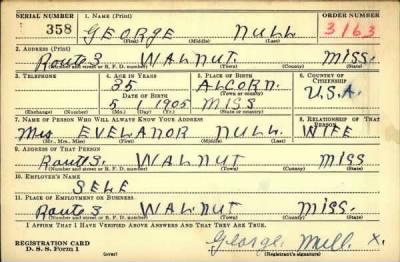 SERIAL NUMBER 1. NAME (Print) ORDER NUMBER
358 GEORGE NULL 3163
(First) (Middle) (Last)
2. ADDRESS (Print)
Route 3. WALNUT. MISS.
(Number and street or R. F. D. number) (Town) (County) (State)
3. TELEPHONE 4. AGE IN YEARS 5. PLACE OF BIRTH 6. COUNTRY OF CITIZENSHIP
35 ALCORN.
DATE OF BIRTH (Town or county) U.S.A.
5 1905 MISS
(Exchange) (Number) (Mo.) (Day) (Yr.) (State or country)
7. NAME OF PERSON WHO WILL ALWAYS KNOW YOUR ADDRESS 8. RELATIONSHIP OF THAT PERSON
Mrs EVELANOR NULL. WIFE
(Mr., Mrs., Miss) (First) (Middle) (Last)
9. ADDRESS OF THAT PERSON
Route 3. WALNUT MISS
(Number and street or R. F. D. number) (Town) (County) (State)
10. EMPLOYER'S NAME
SELF
11. PLACE OF EMPLOYMENT OR BUSINESS
Route 3 WALNUT MISS.
(Number and street or R. F. D. number) (Town) (County) (State)
I AFFIRM THAT I HAVE VERIFIED ABOVE ANSWERS AND THAT THEY ARE TRUE.
REGISTRATION CARD George. Null. X.
D. S. S. Form 1 (Registrant's signature)